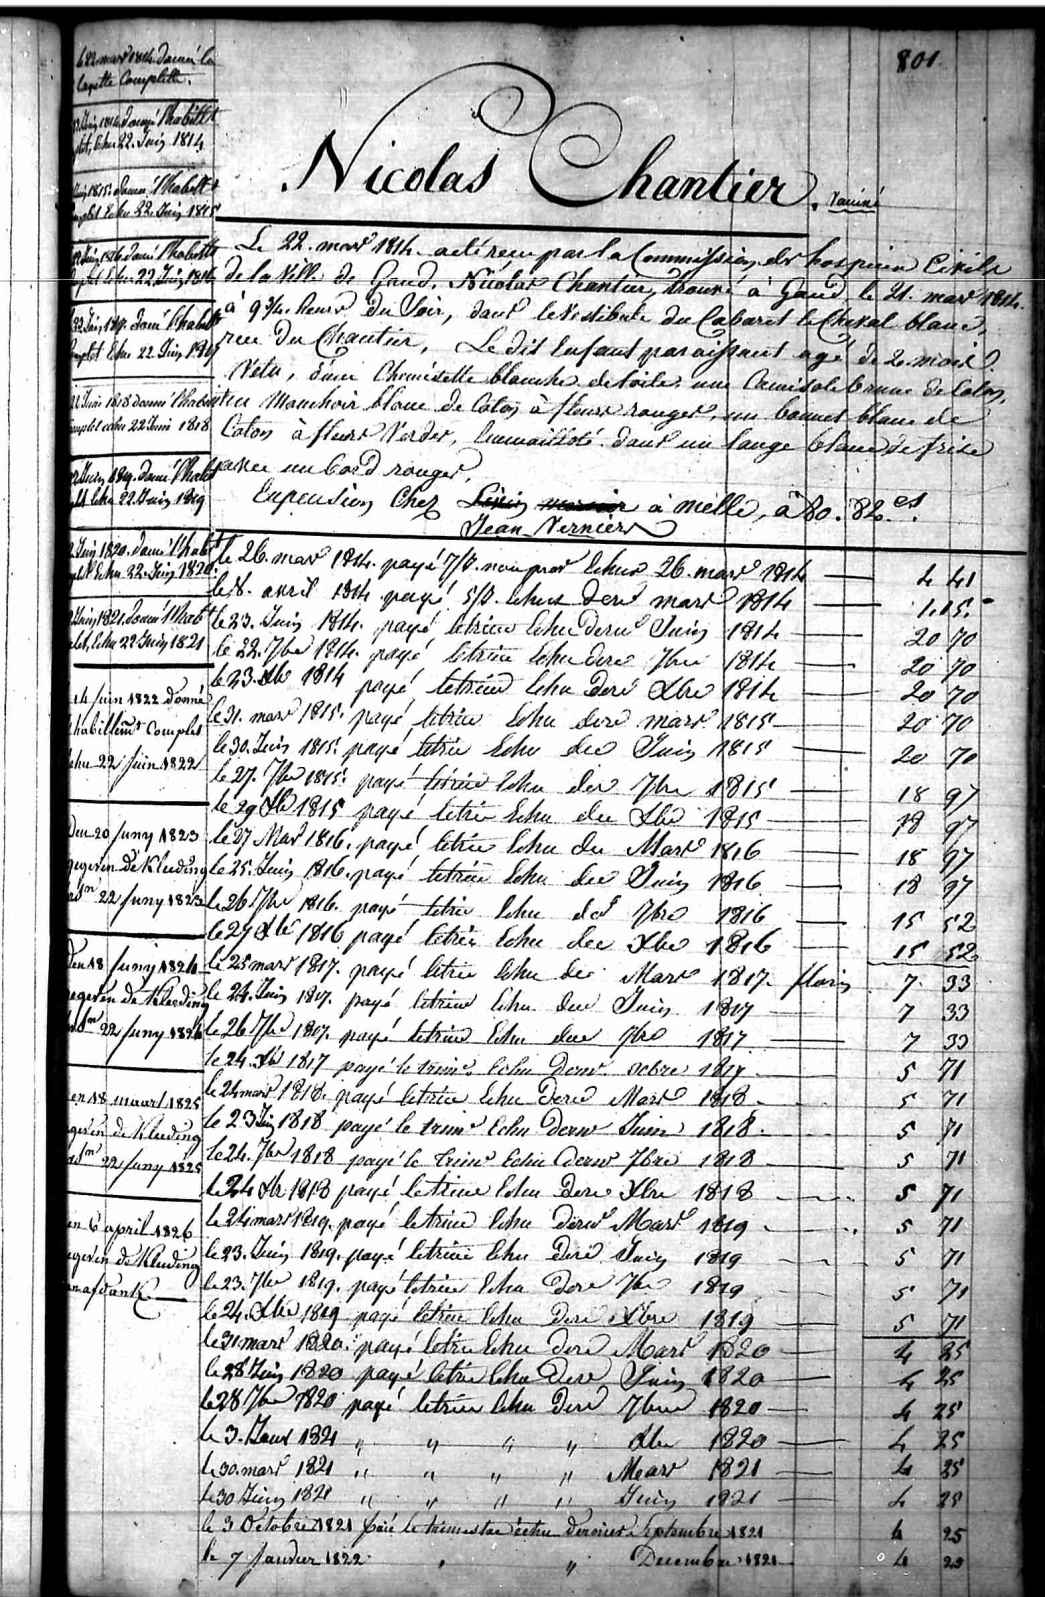 801
Nicolas Chantier.
Le 22. mars 1814. acté reçu par la Commission des hospices Civils
de la Ville de Gand, Nicolas Chantier, trouvé à Gand le 21. mars 1814.
à 9 3/4 heures du Soir, dans le Vestibule du Cabaret le Cheval blanc,
rue du Chantier, Le dit Enfant paraissant agé de 2. mois.
Vêtu, d'une Chemisette blanche de toile, une Camisole brune de Coton,
un Mouchoir blanc de Coton à fleurs rouges, un bonnet blanc de
Coton à fleurs Vertes, Emmailloté dans un lange blanc de frise
avec un bord rouges,
En pension Chez à melle, à 80. 82 es.
Jean Vernier
le 26. mars 1814. payé echus 26. mars 1814 4 41
le 8. avril 1814 payé 5/8. echus dere mars 1814 1.15.
le 23. Juin 1814. payé letrim Echu dern Juin 1814 20 70
le 22. 7bre 1814. payé letrim Echu dere 7bre 1814 20 70
le 23. Xbr 1814 payé letrim Echu deré Xbre 1814 20 70
le 31. mars 1815. payé letrim Echu dere mars 1815 20 70
le 30. Juin 1815. payé letrim Echu der Juin 1815 20 70
le 27. 7bre 1815. payé letrim Echu der 7bre 1815 18 97
le 29 Xbr 1815 payé letrim Echu der Xbre 1815 18 97
le 27 Mars 1816. payé letrim Echu der Mars 1816 18 97
le 25. Juin 1816. payé letrim Echu der Juin 1816 18 97
le 26 7bre 1816. payé letrim Echu der 7bre 1816 15 52
le 27 Xbr 1816 payé letrim Echu der Xbre 1816 15 52
le 25 mars 1817. payé letrim Echu der Mars 1817. florins 7 33
le 24. Juin 1817. payé letrim Echu der Juin 1817 7 33
le 26 7bre 1817. payé letrim Echu der 7bre 1817 7 33
le 24 Xbr 1817 payé le trim. Echu Dernr xcbre 1817 5 71
le 24 mars 1818. payé letrim Echu Dere Mars 1818. 5 71
le 23 Juin 1818 payé le trimr Echu dernr Juin 1818. 5 71
le 24. 7bre 1818 payé le trimr Echu dernr 7bre 1818 5 71
le 24 Xbr 1818 payé letrim Echu Dere Xbre 1818 5 71
le 24 mars 1819. payé letrim Echu derner Mars 1819 5 71
le 23. Juin 1819. payé letrim Echu deré Juin 1819 5 71
le 23. 7bre 1819. payé letrim Echu dere 7bre 1819 5 71
le 24. Xbre 1819 payé letrim Echu deré Xbre 1819 5 71
le 31 mars 1820. payé letrim Echu dere Mars 1820 4 25
le 28 Juin 1820 payé letrim Echu Dere Juin 1820 4 25
le 28 7bre 1820 payé letrim Echu dere 7bre 1820 4 25
le 3. Janv 1821 " " " " Xbre 1820 4 25
le 30. mars 1821 " " " " Mars 1821 4 25
le 30 Juin 1821 " " " " Juin 1821 4 25
le 3 Octobre 1821 païé le trimestre échu dernier Septembre 1821 4 25
le 7 Janvier 1822 " " Decembre 1821 4 25
22 mars 1814. Donné la
layette Complette.
Juin 1814. donné l'habillt
plet, Echu 22. Juin 1814
Juin 1815. donné l'habillt
complet Echu 22. Juin 1815
22 Juin 1816 donné l'habillt
complet Echu 22 Juin 1816
22 Juin 1817. donné l'habillt
complet Echu 22 Juin 1817
22 Juin 1818 donné l'habillt
complet echu 22 Juin 1818
22 Juin 1819. donné l'habillt
plt Echu 22. Juin 1819
Juin 1820. donné l'habillt
plet Echu 22. Juin 1820.
Juin 1821. donné l'habt
plet, Echu 22 Juin 1821
14 Juin 1822 donné
l'habillemt Complet
echu 22 Juin 1822
Den 20 Juny 1823
gegeven de Kleeding
22 Juny 1823
Den 18 Juny 1824
gegeven de Kleeding
22 Juny 1824
en 18 maart 1825
gegeven de Kleeding
22 Juny 1825
en 6 april 1826
gegeven de Kleeding